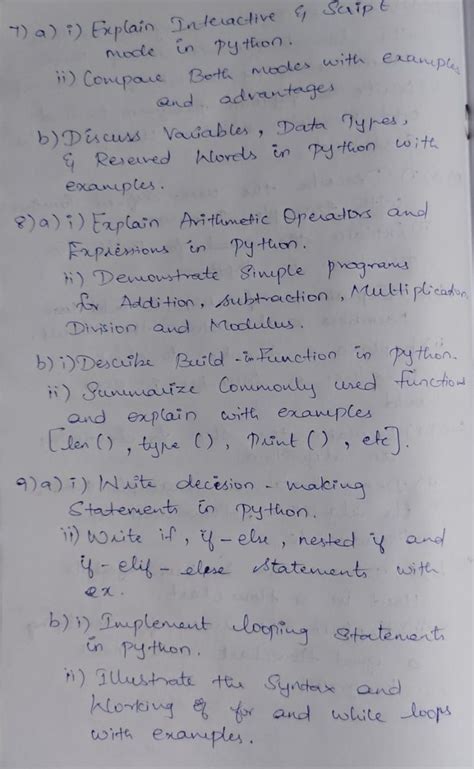 7) a) i) Explain Interactive & Script
mode in python.
ii) Compare Both modes with examples
and advantages
b) Discuss Variables, Data Types,
& Reserved Words in python with
examples.
8) a) i) Explain Arithmetic Operators and
Expressions in python.
ii) Demonstrate Simple programs
for Addition, subtraction, Multiplication,
Division and Modulus.
b) i) Describe Build-in Function in python.
ii) Summarize Commonly used function
and explain with examples
[len(), type(), Print(), etc].
9) a) i) Write decesion-making
Statements in python.
ii) Write if, if-else, nested if and
if-elif-else statements with
ex.
b) i) Implement looping statements
in python.
ii) Illustrate the Syntax and
Working of for and while loops
with examples.